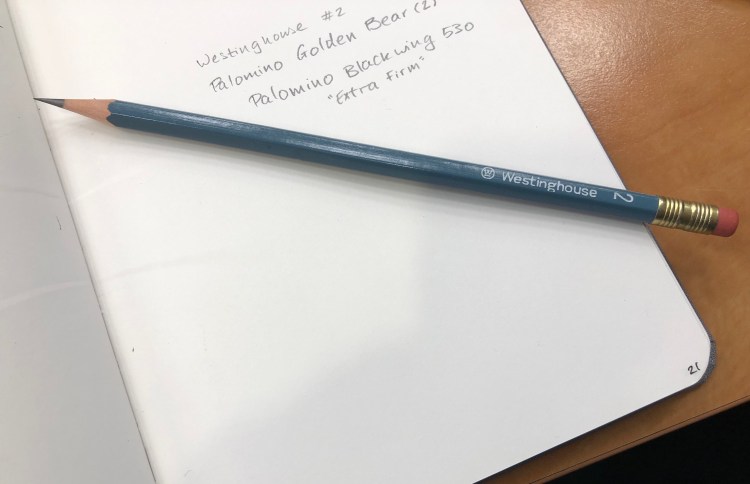 Westinghouse #2
Palomino Golden Bear (2)
Palomino Blackwing 530
"Extra Firm"
Westinghouse 2
21